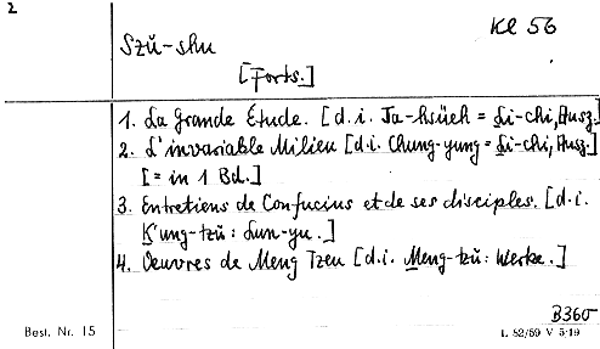 2
Kl 56
Szŭ-shu
[Forts.]
1. La Grande Étude. [d.i. Ta-hsüeh = Li-chi, Ausz.]
2. L'invariable Milieu [d.i. Chung-yung = Li-chi, Ausz.]
[= in 1 Bd.]
3. Entretiens de Confucius et de ses disciples. [d.i.
K'ung-tzŭ: Lun-yu.]
4. Oeuvres de Meng Tzeu [d.i. Meng-tzŭ: Werke.]
B360
Best. Nr. 15
L 52/69 V 5/19